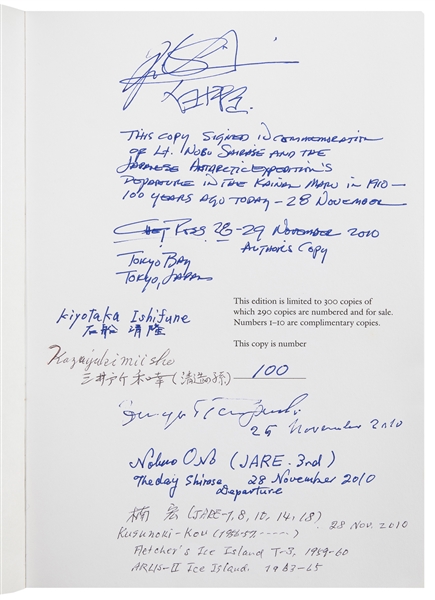 THIS COPY SIGNED IN COMMEMORATION
OF LT. NOBU SHIRASE AND THE
JAPANESE ANTARCTIC EXPEDITION'S
DEPARTURE IN THE KAINAN MARU IN 1910 —
100 YEARS AGO TODAY — 28 NOVEMBER
28-29 NOVEMBER 2010
AUTHOR'S COPY
TOKYO BAY
TOKYO, JAPAN
This edition is limited to 300 copies of
which 290 copies are numbered and for sale.
Numbers 1–10 are complimentary copies.
This copy is number
100
Kiyotaka Ishifune
石船 清隆
Kazuyuki miisho
三井所 和幸
25 November 2010
Nobuo ONO (JARE. 3rd)
The day Shirase 28 November 2010
Departure
楠 宏 (JARE-1, 8, 10, 14, 18)
28 Nov. 2010
Kusunoki-Kou
Fletcher's Ice Island T-3, 1959-60
ARLIS-II Ice Island. 1963-65